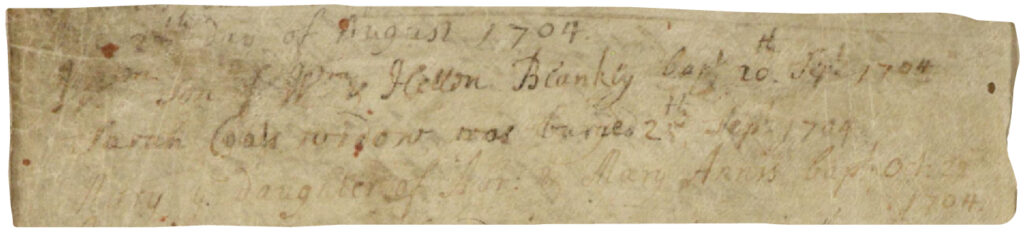 th Day of August 1704.
Son of Wm & Hellen Blankly bapt 20th Sept 1704
Sarah Coats widow was buried 2 Sept 1704
Mary ye Daughter of & Mary Annis bapt Oct 22
1704.